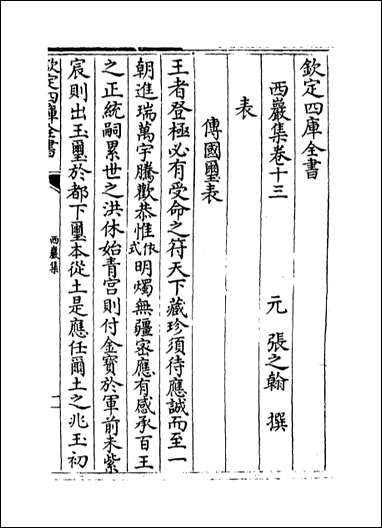 欽定四庫全書
西巖集卷十三
元 張之翰 撰
表
傳國璽表
王者登極必有受命之符天下藏珍須待應誠而至一
朝進瑞萬宇騰歡恭惟依式明燭無疆宻應有感承百王
之正統嗣累世之洪休始青宫則付金寳於軍前未紫
宸則出玉璽於都下璽本從土是應任爾土之兆玉初
欽定四庫全書
西巖集
一